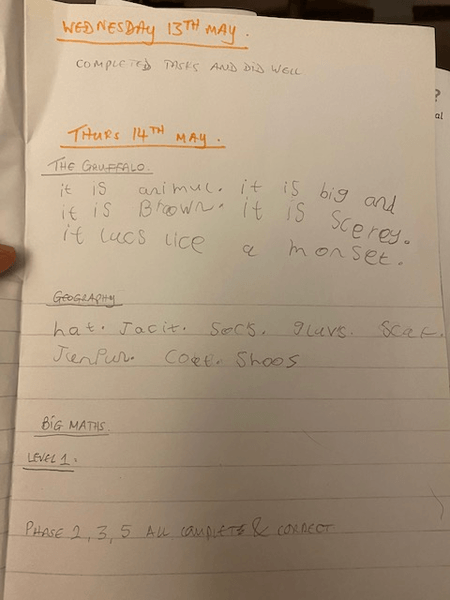 WEDNESDAY 13TH MAY.
COMPLETED TASKS AND DID WELL
THURS 14TH MAY.
THE GRUFFALO.
it is animul. it is big and
it is Brown. it is Scerey.
it lucs lice a monset.
GEOGRAPHY
hat. Jacit. Socs. gluvs. Scaf.
JunPur. Coet. Shoos
BIG MATHS
LEVEL 1:
PHASE 2, 3, 5 ALL COMPLETE & CORRECT
?
al